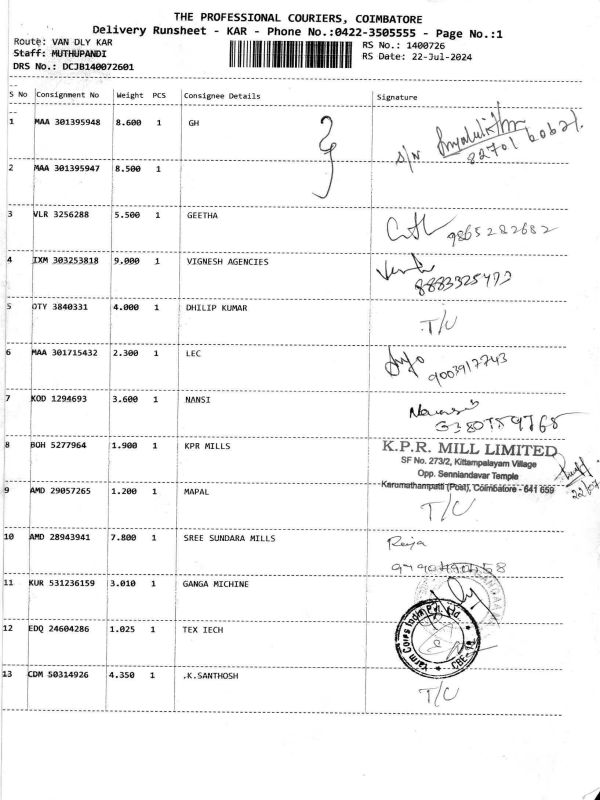 THE PROFESSIONAL COURIERS, COIMBATORE
Delivery Runsheet - KAR - Phone No.:0422-3505555 - Page No.:1
Route: VAN DLY KAR RS No.: 1400726
Staff: MUTHUPANDI RS Date: 22-Jul-2024
DRS No.: DCJB140072601
S No Consignment No Weight PCS Consignee Details Signature
1 MAA 301395948 8.600 1 GH
S/N
2 MAA 301395947 8.500 1
3 VLR 3256288 5.500 1 GEETHA
9865282682
4 IXM 303253818 9.000 1 VIGNESH AGENCIES
8883325473
5 OTY 3840331 4.000 1 DHILIP KUMAR T/C
6 MAA 301715432 2.300 1 LEC
9003917743
7 KOD 1294693 3.600 1 NANSI
8 BOH 5277964 1.900 1 KPR MILLS
K.P.R. MILL LIMITED
SF No. 273/2, Kittampalayam Village
Opp. Senniandavar Temple
Karumathampatti (Post), Coimbatore - 641 659
22/07
9 AMD 29057265 1.200 1 MAPAL T/C
10 AMD 28943941 7.800 1 SREE SUNDARA MILLS
11 KUR 531236159 3.010 1 GANGA MICHINE
12 EDQ 24604286 1.025 1 TEX IECH
13 CDM 50314926 4.350 1 .K.SANTHOSH T/C